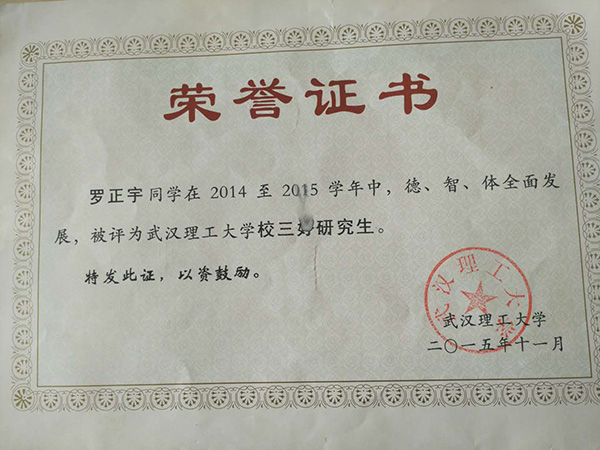 荣誉证书
罗正宇同学在 2014 至 2015 学年中，德、智、体全面发
展，被评为武汉理工大学校三好研究生。
特发此证，以资鼓励。
武汉理工大学
武汉理工大学
二〇一五年十一月